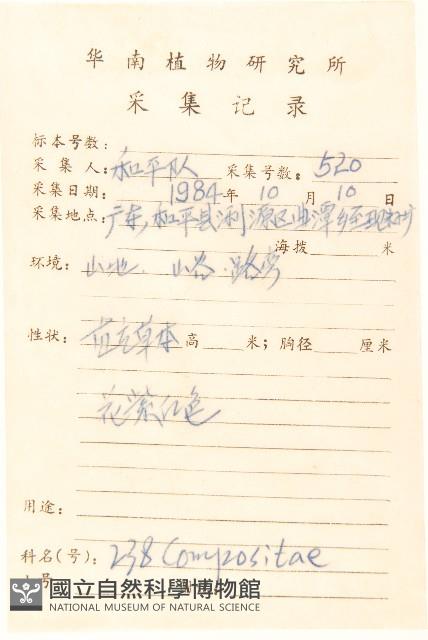 华南植物研究所
采集记录
标本号数:
采集人: 和平队 采集号数: 520
采集日期: 1984年 10月 10日
采集地点: 广东,和平县浰源区曲潭乡
海拔 米
环境: 山地. 山谷.路旁
性状: 直立草本 高 米; 胸径 厘米
花紫红色
用途:
科名(号): 238 Compositae
號
國立自然科學博物館
NATIONAL MUSEUM OF NATURAL SCIENCE